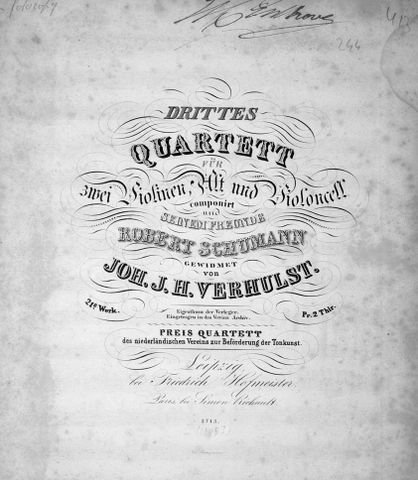 244
DRITTES
QUARTETT
FÜR
zwei Violinen, Alt und Violoncell
componirt
und
SEINEM FREUNDE
ROBERT SCHUMANN
GEWIDMET
von
JOH. J. H. VERHULST.
21s Werk. Pr. 2 Thlr.
Eigenthum der Verleger.
Eingetragen in das Vereins Archiv.
PREIS QUARTETT
des niederländischen Vereins zur Beförderung der Tonkunst.
Leipzig
bei Friedrich Hofmeister.
Paris, bei Simon Richault.